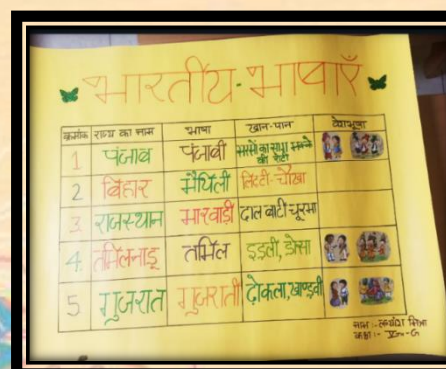 भारतीय-भाषाएँ
क्रमांक राज्य का नाम भाषा खान-पान वेशभूषा
1 पंजाब पंजाबी सरसों का साग मक्के की रोटी
2 बिहार मैथिली लिट्टी-चोखा
3. राजस्थान मारवाड़ी दाल बाटी चूरमा
4. तमिलनाडू तमिल इडली, डोसा
5. गुजरात गुजराती ढ़ोकला, खाण्डवी
नाम :-
कक्षा :-